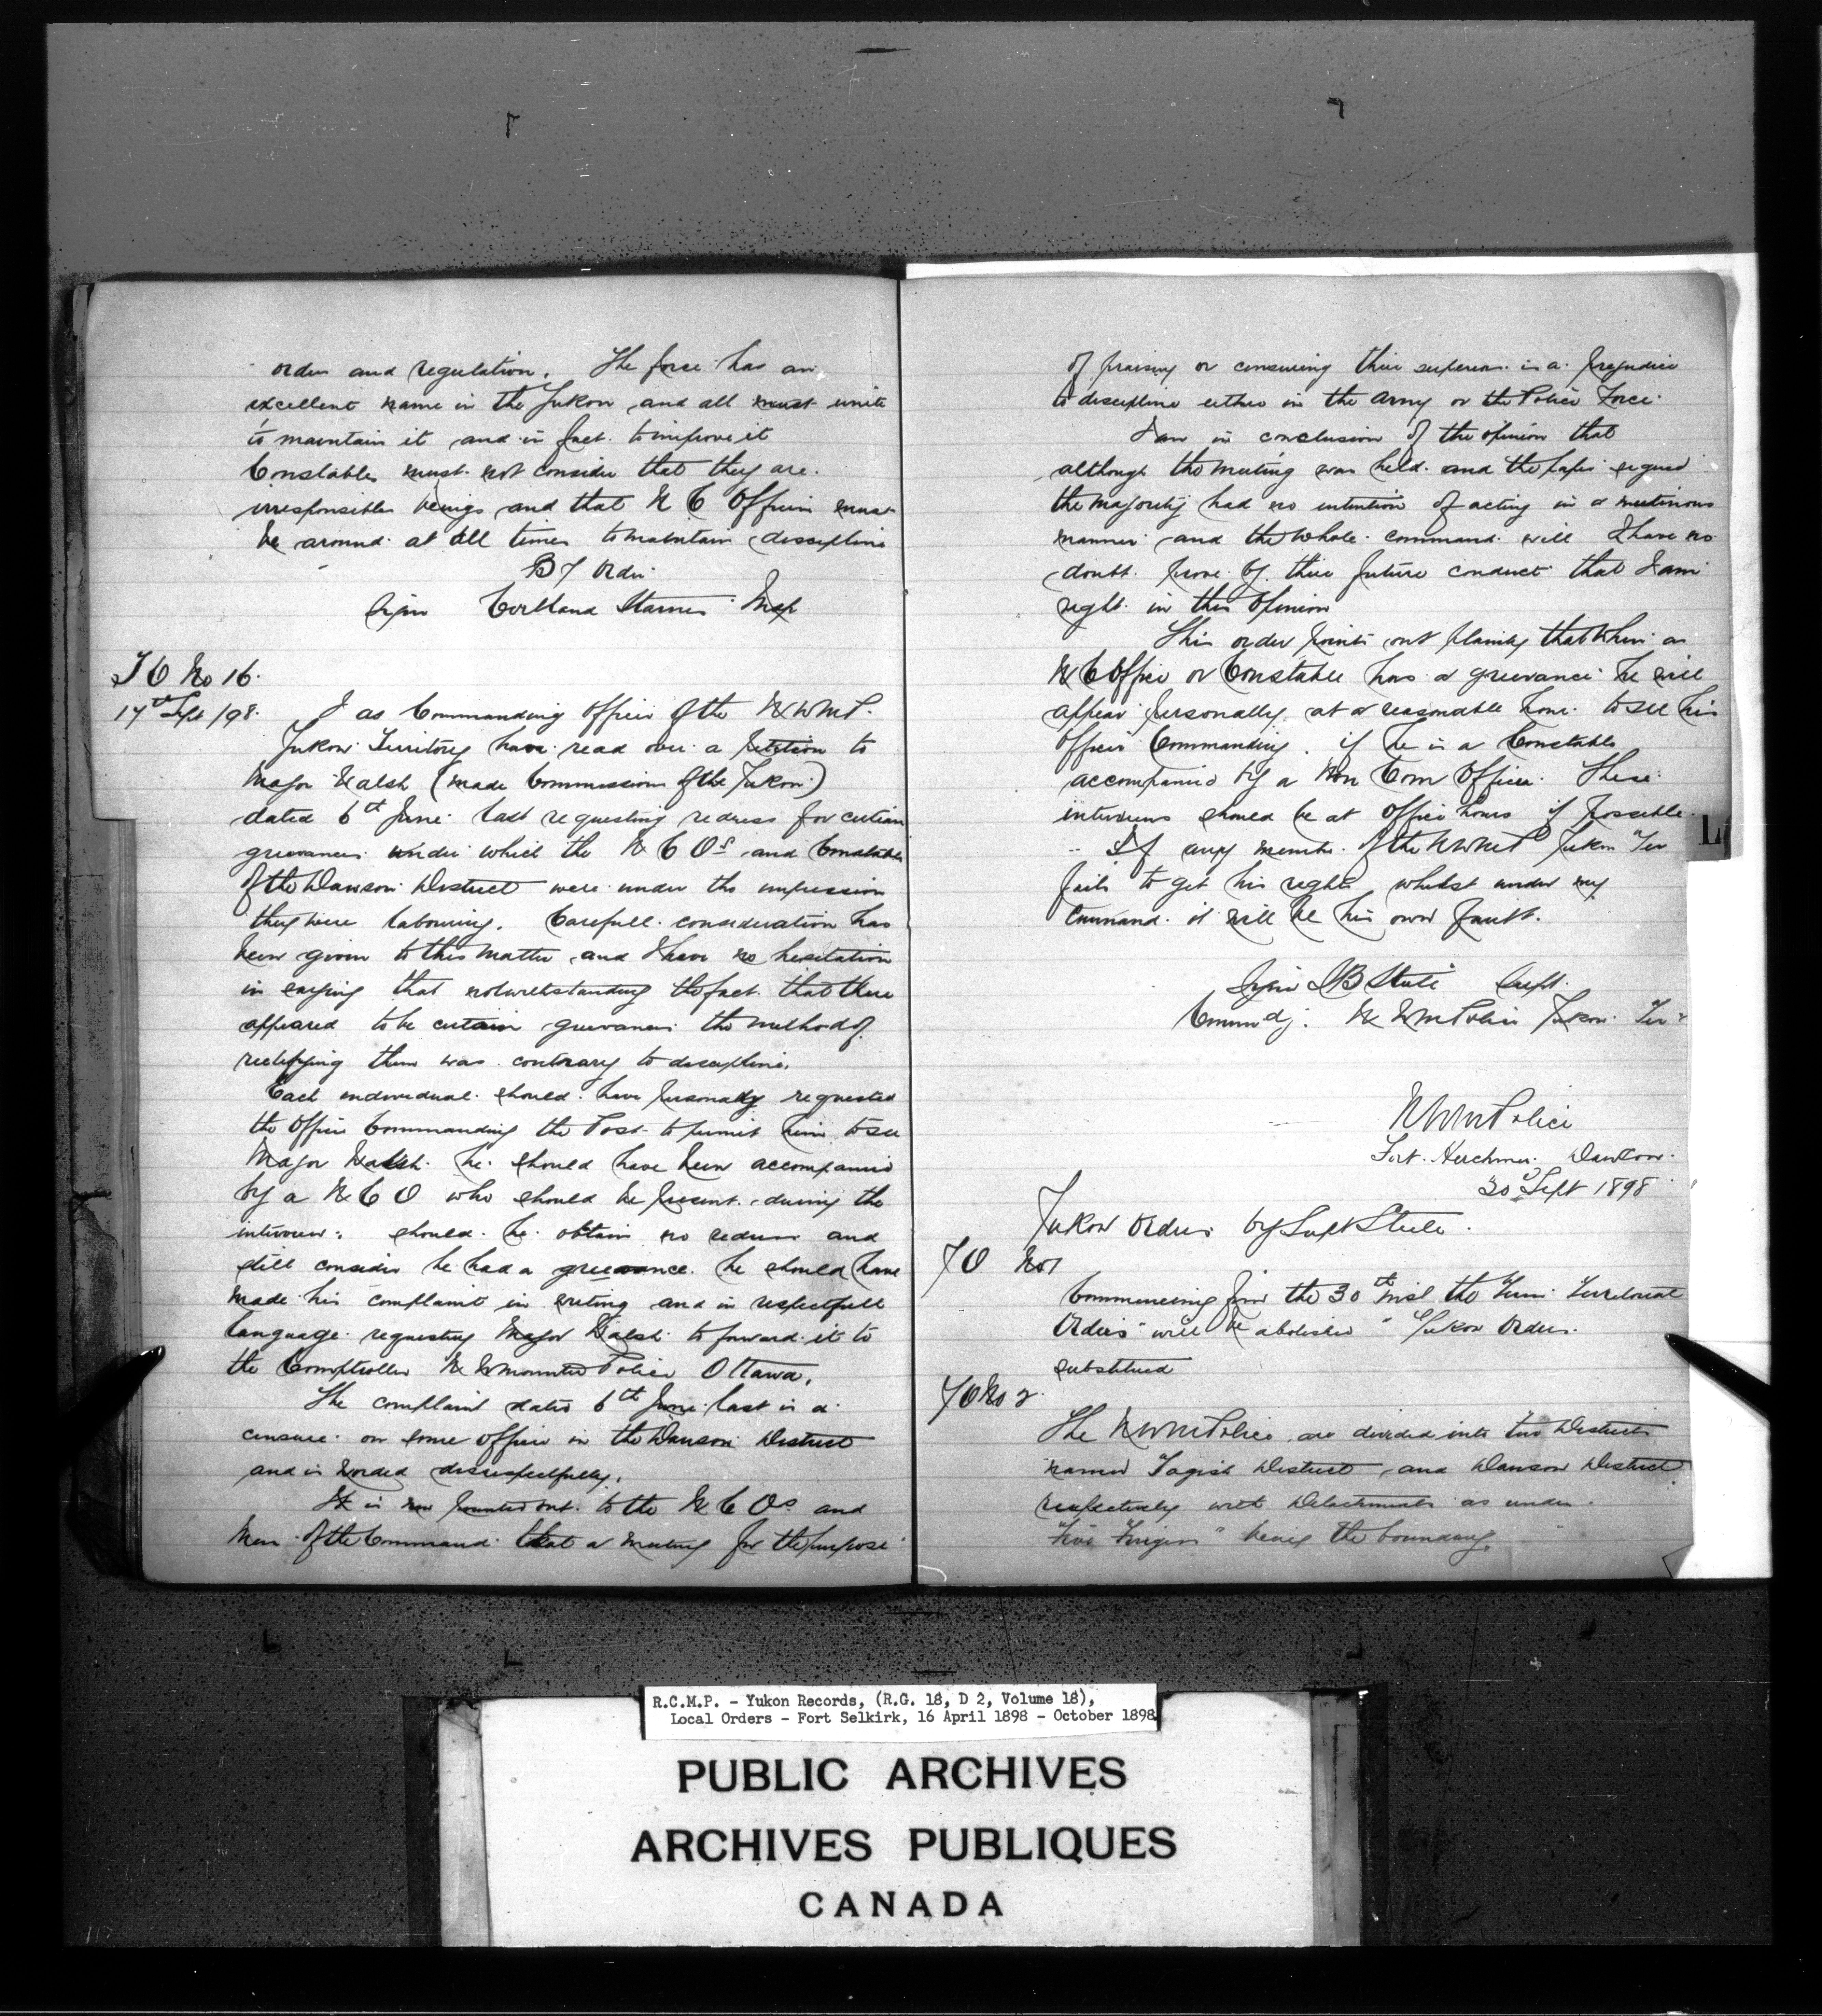 order and regulation. The force has an
excellent name in the Yukon and all must unite
to maintain it and in fact to improve it
Constables must not consider that they are
irresponsible beings and that N C Officers must
be around at all times to maintain discipline
By Order
Sgn Cortland Starnes Insp
T O No 16.
17th Sept /98.
I as Commanding Officer of the N W M P.
Yukon Territory have read over a petition to
Major Walsh (made Commissioner of the Yukon)
dated 6th June last requesting redress for certain
grievances under which the N C Os and Constables
of the Dawson District were under the impression
they were labouring. Carefull consideration has
been given to this matter and I have no hesitation
in saying that notwithstanding the fact that there
appeared to be certain grievances the method of
rectifying them was contrary to discipline.
Each individual should have personally requested
the Officer Commanding the Post to permit him to see
Major Walsh. he should have been accompanied
by a N C O who should be present during the
interview; should he obtain no redress and
still consider he had a grievance he should have
made his complaint in writing and in respectfull
language requesting Major Walsh to forward it to
the Comptroller N W Mounted Police Ottawa.
The complaint dated 6th June last is a
censure on some officer in the Dawson District
and is worded disrespectfully.
It is now pointed out to the N C Os and
Men of the Command that a meeting for the purpose
of praising or censuring their superiors is a prejudice
to discipline either in the Army or the Police Force.
I am in conclusion of the opinion that
although the meeting was held and the paper signed
the majority had no intention of acting in a mutinous
manner and the whole command will I have no
doubt prove by their future conduct that I am
right in this opinion
This order points out plainly that when a
N C Officer or Constable has a grievance he will
appear personally at a reasonable hour to see his
Officer Commanding. if he is a Constable
accompanied by a Non Com Officer. These
interviews should be at Office hours if possible.
If any member of the N W M P Yukon Ter
fails to get his rights whilst under my
Command it will be his own fault.
Sgn S B Steele Supt.
Commdg. N W M Police Yukon Ter
N W M Police
Fort Herchmer Dawson
30 Sept 1898
Yukon Orders by Supt Steele.
Y O No 1
Commencing from the 30th inst the term Territorial
Orders" will be abolished "Yukon Orders
substituted
Y O No 2.
The N W M Police are divided into two Districts
named Tagish District and Dawson District
respectively with Detachments as under.
"Five Fingers" being the boundary.
L
R.C.M.P. - Yukon Records, (R.G. 18, D 2, Volume 18),
Local Orders - Fort Selkirk, 16 April 1898 - October 1898
PUBLIC ARCHIVES
ARCHIVES PUBLIQUES
CANADA